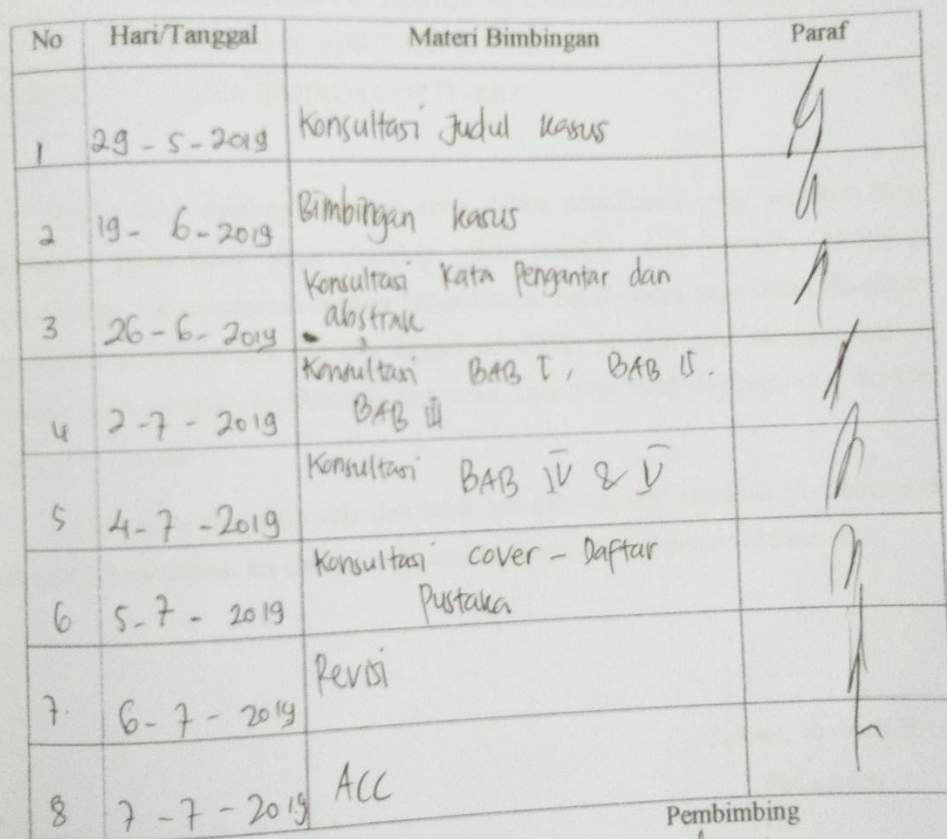 No Hari/Tanggal Materi Bimbingan Paraf
1 29-5-2019 Konsultasi Judul kasus
2 19-6-2019 Bimbingan kasus
3 26-6-2019 Konsultasi Kata Pengantar dan
abstrak
4 2-7-2019 Konsultasi BAB I, BAB II.
BAB III
5 4-7-2019 Konsultasi BAB IV & V
6 5-7-2019 Konsultasi cover - Daftar
Pustaka
7. 6-7-2019 Revisi
8 7-7-2019 ACC
Pembimbing